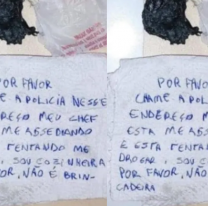 POR FAVOR
E A POLICIA NESSE
REÇO MEU CHEF
ME ASSEDIANDO
TENTANDO ME
, SOU COZINHEIRA
OR, NÃO É BRIN-
POR FAVOR
CHAME A POLI
ENDEREÇO M
ESTA ME ASSE
E ESTA TENTAN
DROGAR, SOU CO
POR FAVOR, NÃO
CADEIRA